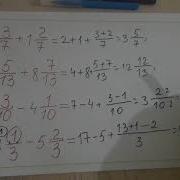 3/7 + 1 2/7 = 2 + 1 + (3+2)/7 = 3 5/7;
5/13 + 8 7/13 = 4 + 8 + (5+7)/13 = 12 12/13;
3/10 - 4 1/10 = 7 - 4 + (3-1)/10 = 3 2/10 =
1/3 - 5 2/3 = 17 - 5 + (13+1-2)/3 =